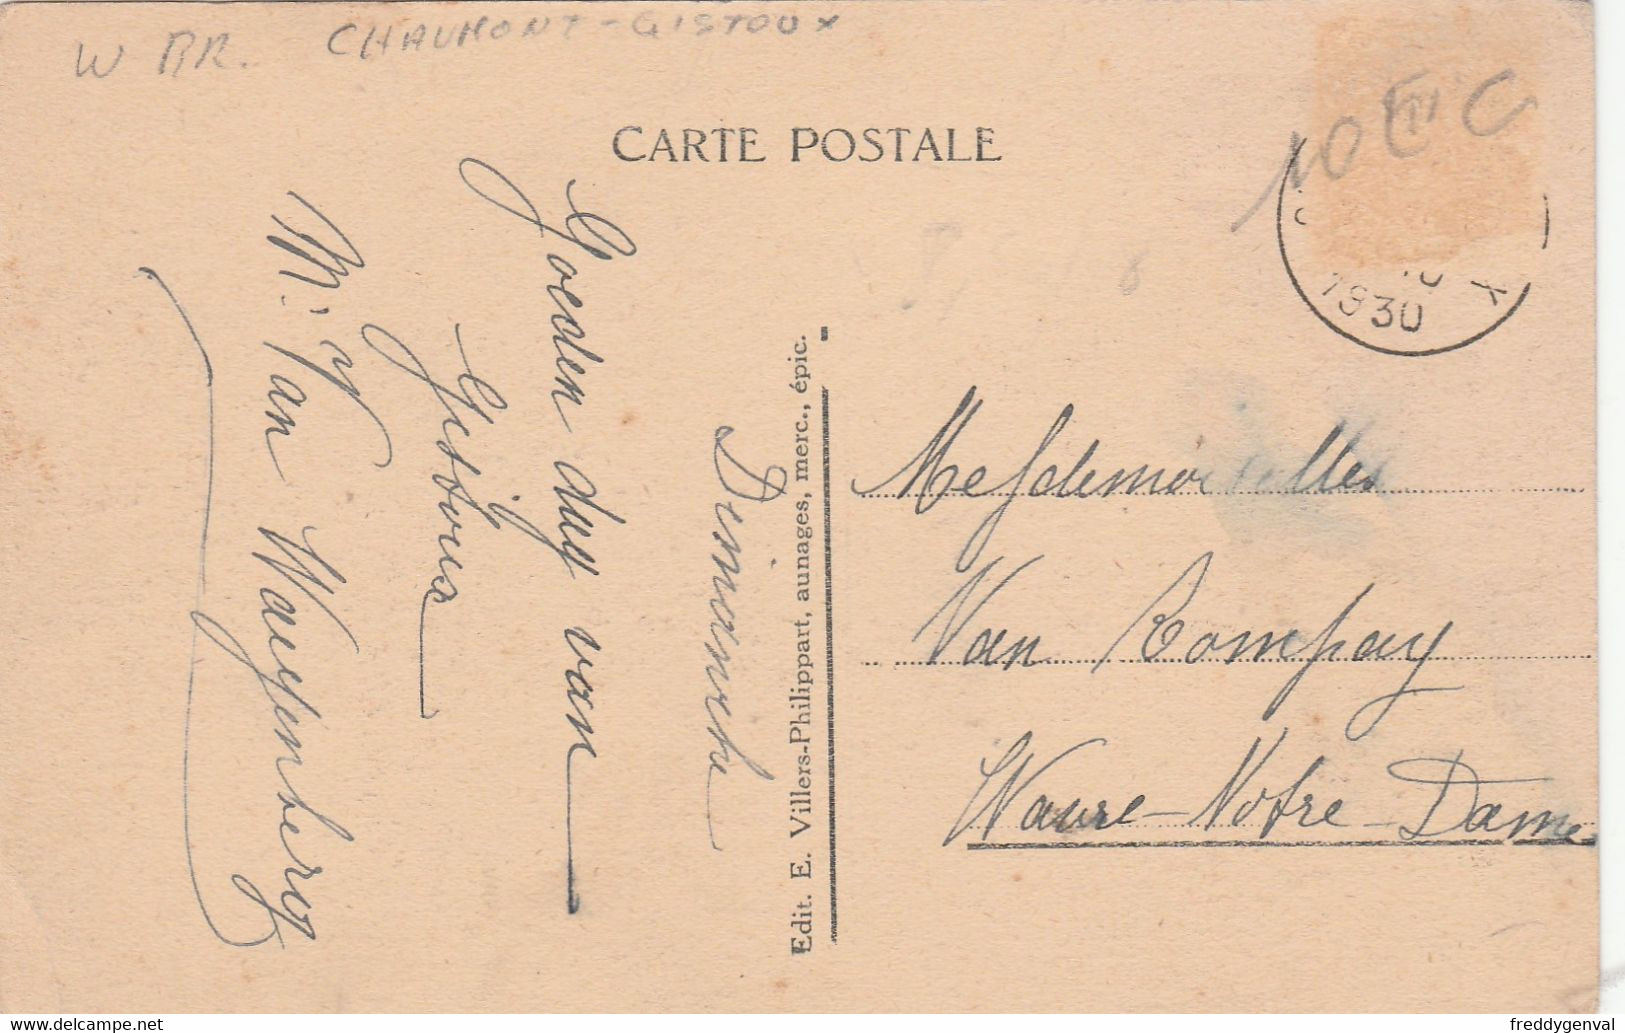 W BR. CHAUMONT-GISTOUX
CARTE POSTALE
10 € C
10
1930
X
Dimanche
Goeden dag van
Gistoux
M. Van Waeyenberg
Edit. E. Villers-Philippart, aunages, merc., épic.
Mesdemoiselles
Van Rompay
Wavre-Notre-Dame
freddygenval